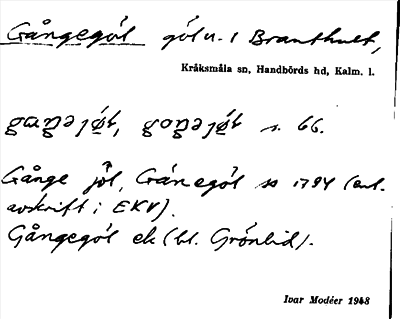 Gångegöl göl u. i Branthult,
Kråksmåla sn, Handbörds hd, Kalm. l.
s. 66.
Gånge jöl, Gånegöl so 1794 (enl.
avskrift i EKV).
Gångegöl ek (bl. Grönlid).
Ivar Modéer 1948